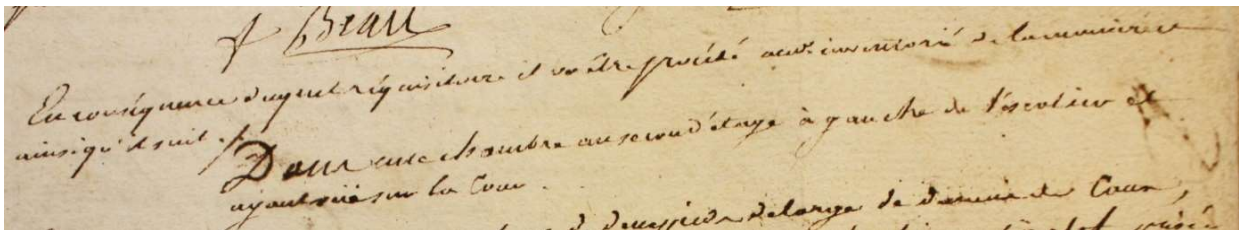 Beau
En conséquence duquel réquisitoire il va être procédé aud. inventorié de la manière et
ainsi qu'il suit ./.
Dans une chambre au second étage à gauche de l'escalier et
ayant vüe sur la Cour.
de deux pieds de large de devanture de Cour,